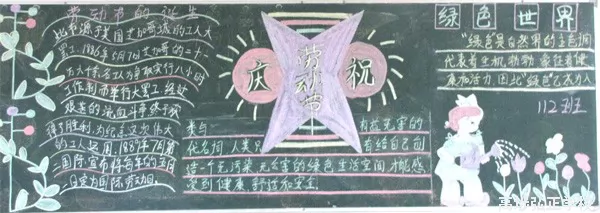 劳动节的诞生
此节源于美国芝加哥城的工人大
罢工.1886年5月7日芝加哥的二十一
万六千余名工人为争取实行八小时
工作制而举行大罢工 经过
艰苦的流血斗争终于获
得了胜利.为纪念这次伟大
的工人运动.1889年7月第
二国际宣布将每年的五月
一日定为国际劳动日.
庆
祝
劳动节
参与 有益无害的
代名词 人类只 有给自己创
造一个无污染 无公害的绿色生活空间 才能感
受到健康 舒适和安全
绿色世界
"绿色是自然界的主色调
代表着生机勃勃 象征着健
康和活力.因此"绿色"已成为人
112班